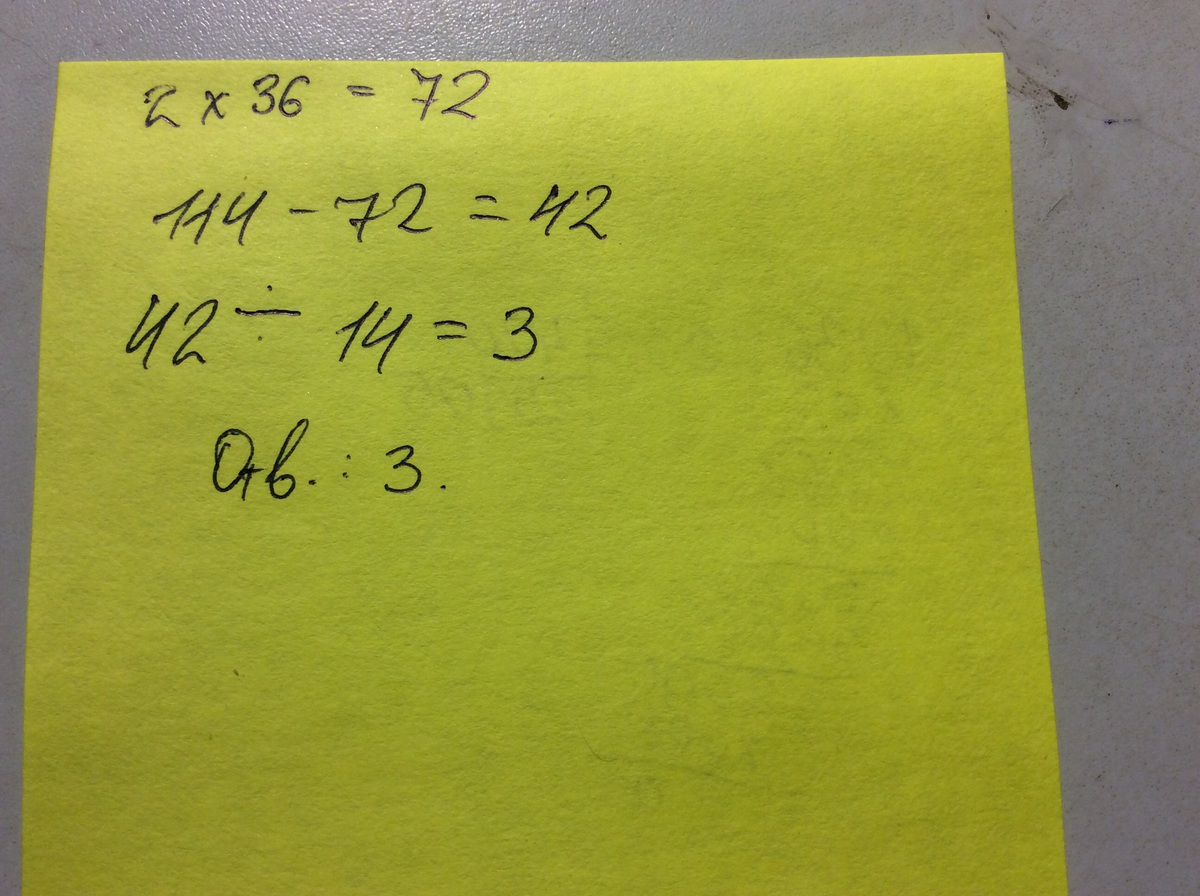 2 x 36 = 72
114 - 72 = 42
42 ÷ 14 = 3
Отв.: 3.